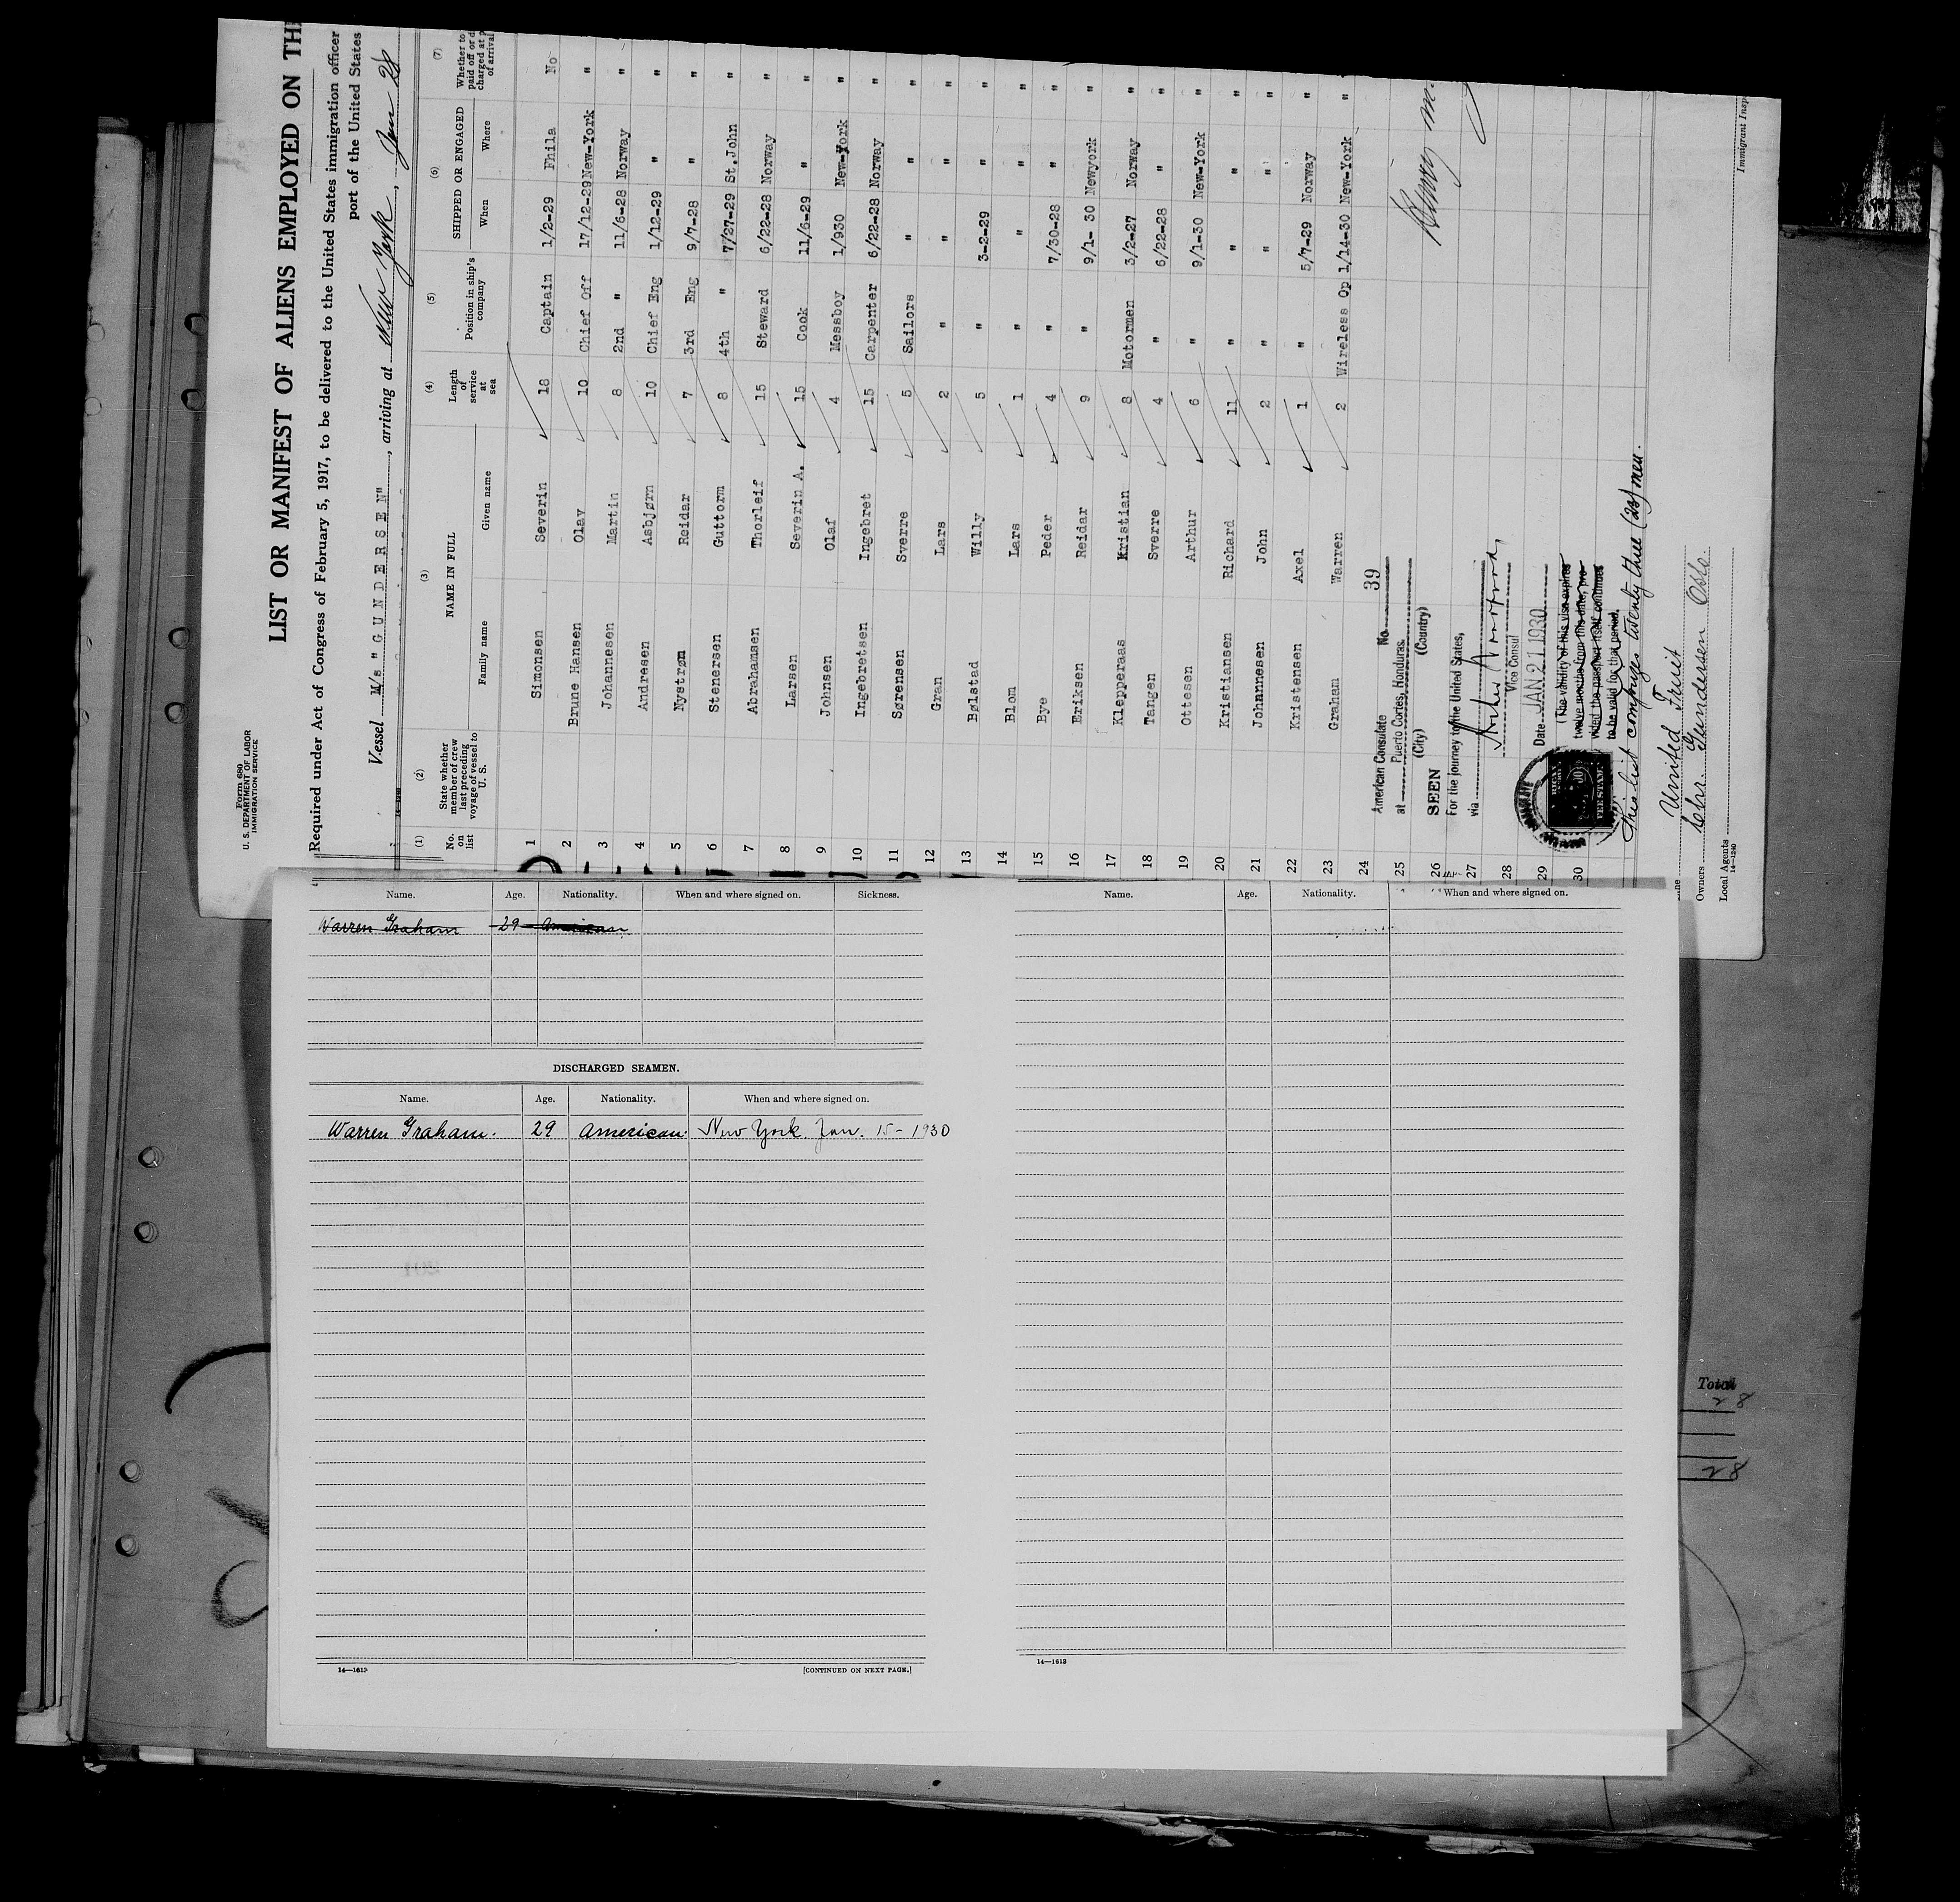 Form 680
U. S. DEPARTMENT OF LABOR
IMMIGRATION SERVICE
LIST OR MANIFEST OF ALIENS EMPLOYED ON TH
Required under Act of Congress of February 5, 1917, to be delivered to the United States immigration officer
port of the United States
Vessel M/s "GUNDERSEN", arriving at New York, Jan 28
(1) (2) (3) (4) (5) (6) (7)
No. on list
State whether member of crew last preceding voyage of vessel to U. S.
NAME IN FULL
Family name Given name
Length of service at sea
Position in ship's company
SHIPPED OR ENGAGED
When Where
Whether to paid off or d charged at p of arrival
1 Simonsen Severin 18 Captain 1/2-29 Phila No
2 Brune Hansen Olav 10 Chief Off 17/12-29 New-York "
3 Johannesen Martin 8 2nd " 11/6-28 Norway "
4 Andresen Asbjørn 10 Chief Eng 1/12-29 " "
5 Nystrøm Reidar 7 3rd Eng 9/7-28 " "
6 Stenersen Guttorm 8 4th " 7/27-29 St.John "
7 Abrahamsen Thorleif 15 Steward 6/22-28 Norway "
8 Larsen Severin A. 15 Cook 11/6-29 " "
9 Johnsen Olaf 4 Messboy 1/930 New-York "
10 Ingebretsen Ingebret 15 Carpenter 6/22-28 Norway "
11 Sørensen Sverre 5 Sailors " " "
12 Gran Lars 2 " " " "
13 Bølstad Willy 5 " 3-2-29 " "
14 Blom Lars 1 " " " "
15 Bye Peder 4 " 7/30-28 " "
16 Eriksen Reidar 9 " 9/1- 30 Newyork "
17 Klepperaas Kristian 8 Motormen 3/2-27 Norway "
18 Tangen Sverre 4 " 6/22-28 " "
19 Ottesen Arthur 6 " 9/1-30 New-York "
20 Kristiansen Richard 11 " " " "
21 Johnnesen John 2 " " " "
22 Kristensen Axel 1 " 5/7-29 Norway "
23 Graham Warren 2 Wireless Op 1/14-30 New-York "
24
25
26
27
28
29
30
American Consulate No. 39
at Puerto Cortes, Honduras.
(City) (Country)
SEEN
For the journey to the United States,
via
Vice Consul
Date JAN 21 1930
(The validity of this visa expires
twelve months from this date, pro-
vided the passport itself continues
to be valid for that period.
FEE STAMP
This list comprises twenty three (23) men.
United Fruit
Owners Chr. Gundersen Oslo.
Local Agents
14—1240
Immigrant Insp
Name. Age. Nationality. When and where signed on. Sickness.
Warren Graham 29 American
DISCHARGED SEAMEN.
Name. Age. Nationality. When and where signed on.
Warren Graham. 29 American. New York. Jan. 15- 1930
14—1613
[CONTINUED ON NEXT PAGE.]
Name. Age. Nationality. When and where signed on.
14—1613
Total
28
28